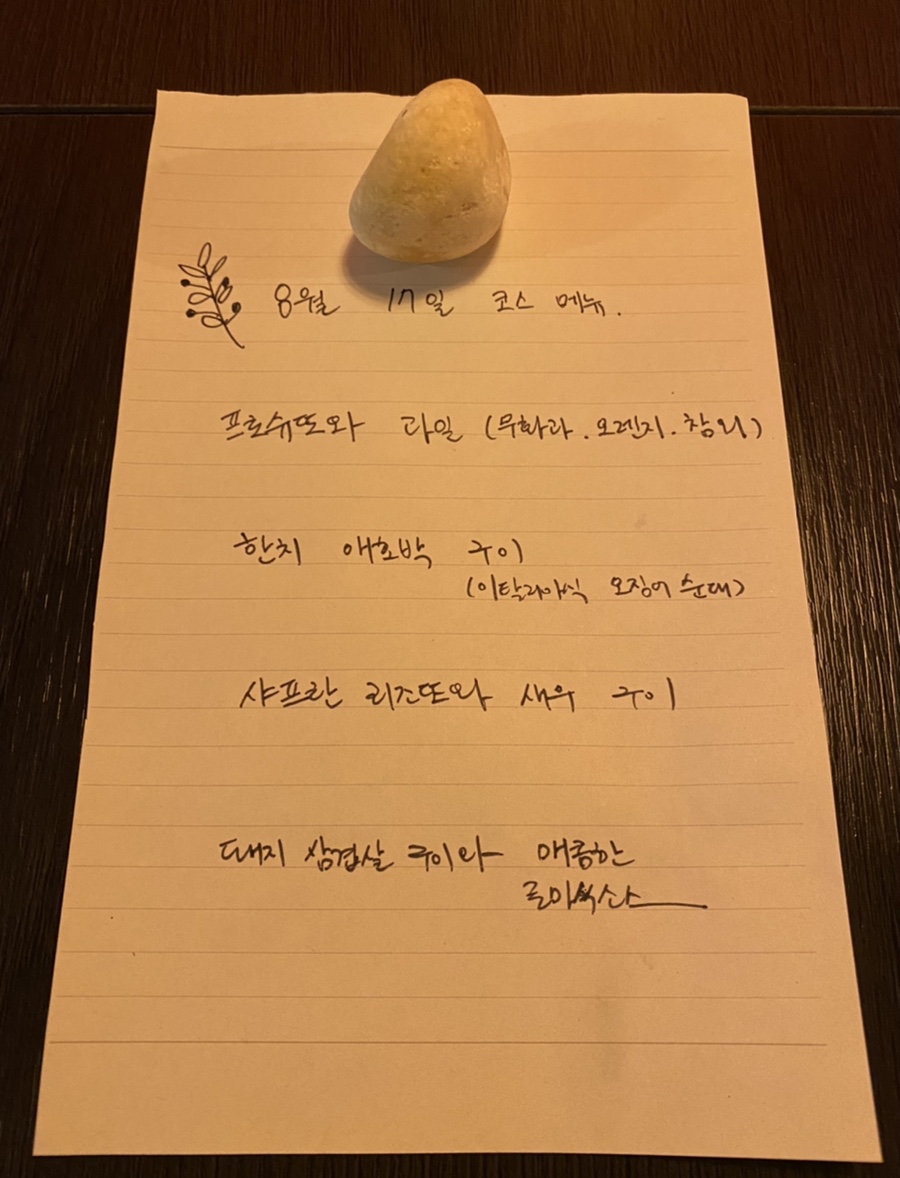 8월 17일 코스 메뉴.
프로슈또와 과일 (무화과.오렌지.참외)
한치 애호박 구이
(이탈리아식 오징어 순대)
샤프란 리조또와 새우 구이
돼지 삼겹살 구이와 매콤한